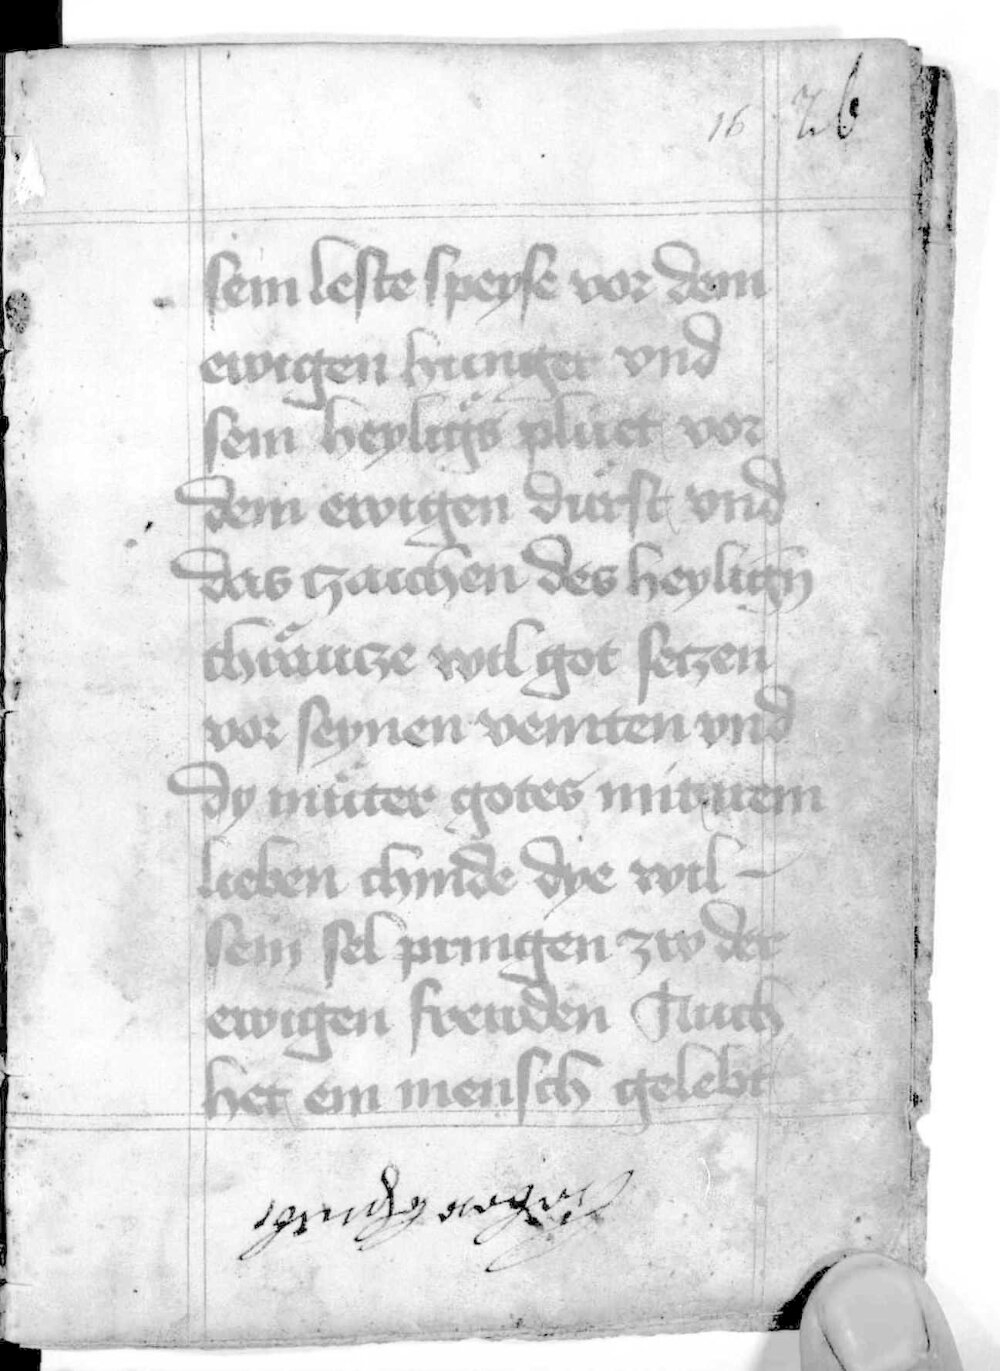 16 26
sein leste speyse vor dem
ewigen hunger vnd
sein heyligs pluet vor
dem ewigen durst vnd
das zaichen des heylign
chräucze wil got seczen
vor seynen veinten vnd
dy muter gotes mit irem
lieben chinde dye wil -
sein sel pringen zw der
ewigen frewden Auch
het ein mensch gelebt